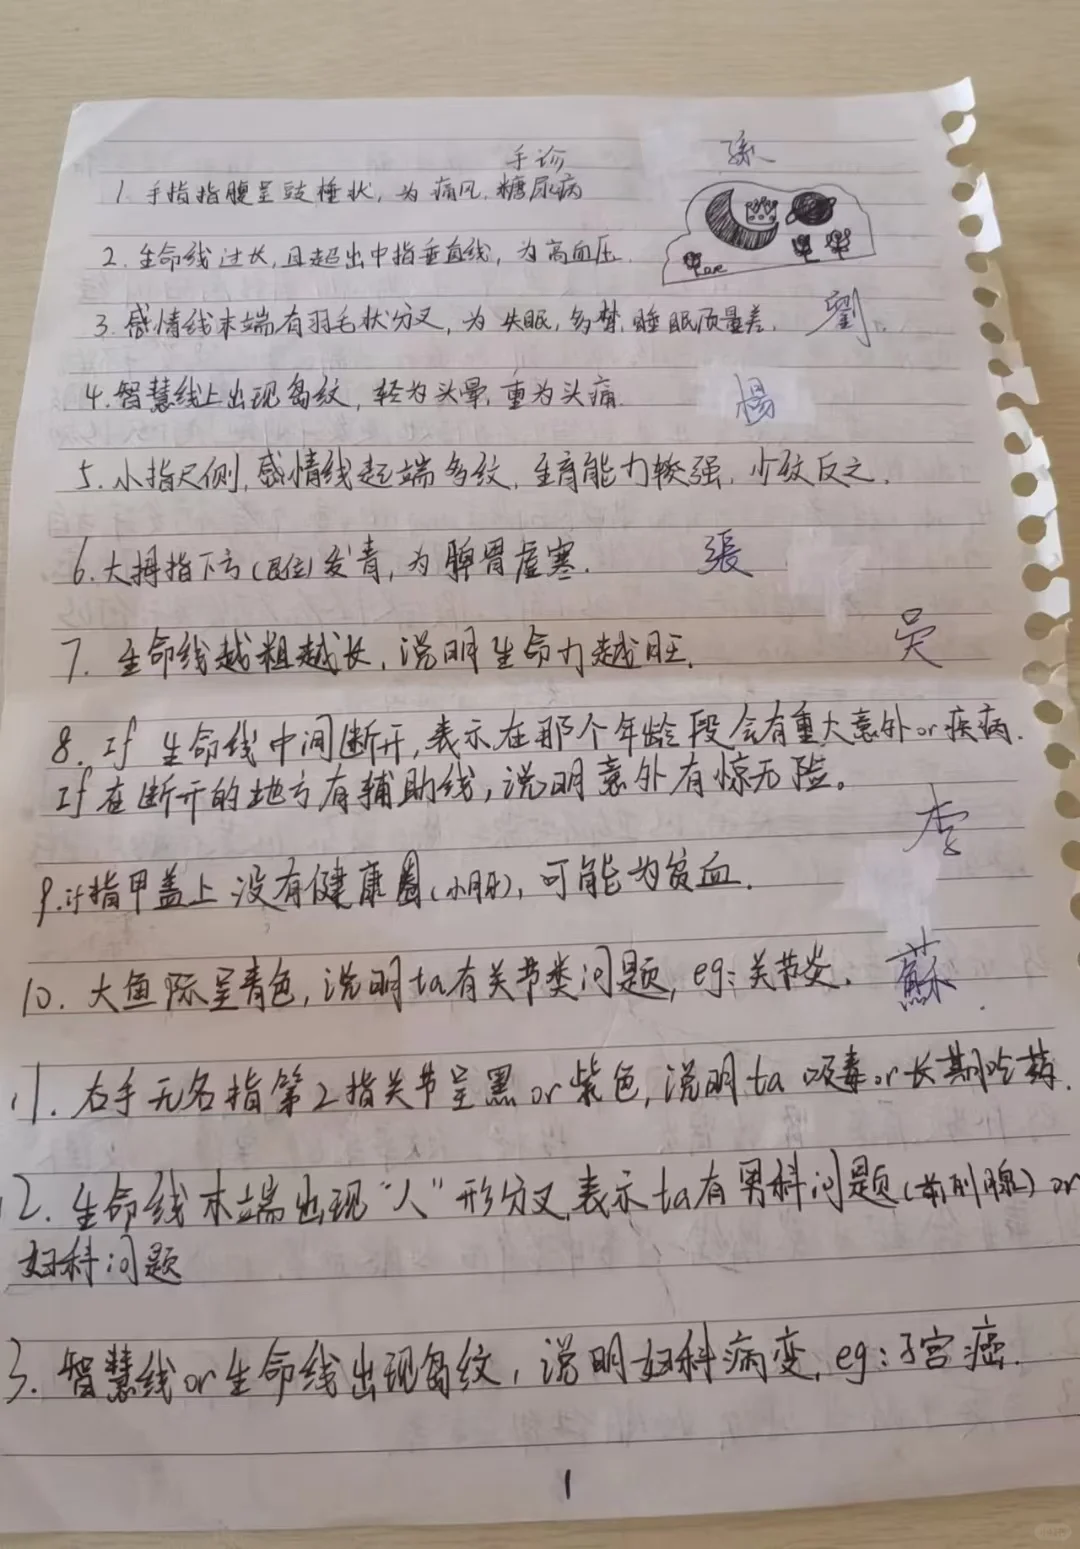 手诊
孫
1. 手指指腹呈鼓棰状，为痛风，糖尿病
2. 生命线过长，且超出中指垂直线，为高血压.
3. 感情线末端有羽毛状分叉，为失眠，多梦，睡眠质量差.
劉
4. 智慧线上出现岛纹，轻为头晕，重为头痛.
楊
5. 小指尺侧，感情线起端多纹，生育能力较强，少纹反之.
6. 大拇指下方(艮位)发青，为脾胃虚寒.
張
吴
7. 生命线越粗越长，说明生命力越旺.
8. If 生命线中间断开，表示在那个年龄段会有重大意外or疾病.
If在断开的地方有辅助线，说明意外有惊无险。
李
9. if指甲盖上没有健康圈(小月牙)，可能为贫血.
10. 大鱼际呈青色，说明ta有关节类问题，eg：关节炎.
蘇
11. 右手无名指第2指关节呈黑or紫色，说明ta吸毒or长期吃药.
12. 生命线末端出现“人”形分叉，表示ta有男科问题(前列腺)or
妇科问题
3. 智慧线or生命线出现岛纹，说明妇科病变，eg：子宫癌.
1